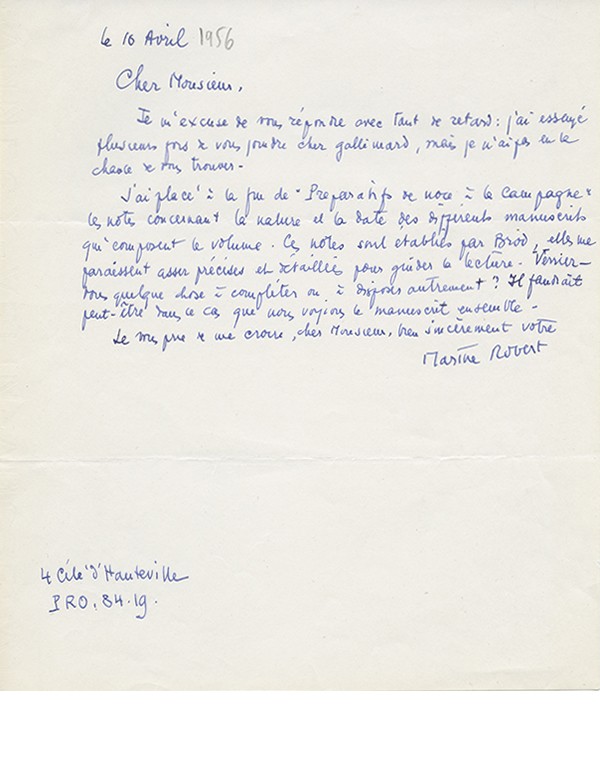 le 16 Avril 1956
Cher Monsieur,
Je m'excuse de vous répondre avec tant de retard : j'ai essayé
plusieurs fois de vous joindre chez Gallimard, mais je n'ai pas eu la
chance de vous trouver -
J'ai placé à la fin de "Préparatifs de noce à la campagne"
les notes concernant la nature et la date des différents manuscrits
qui composent le volume. Ces notes sont établies par Brod, elles me
paraissent assez précises et détaillées pour guider la lecture. Verriez-
vous quelque chose à compléter ou à disposer autrement ? Il faudrait
peut-être dans ce cas que nous voyions le manuscrit ensemble -
Je vous prie de me croire, cher Monsieur, bien sincèrement votre
Marthe Robert
4 Cité d'Hauteville
PRO. 84.19.